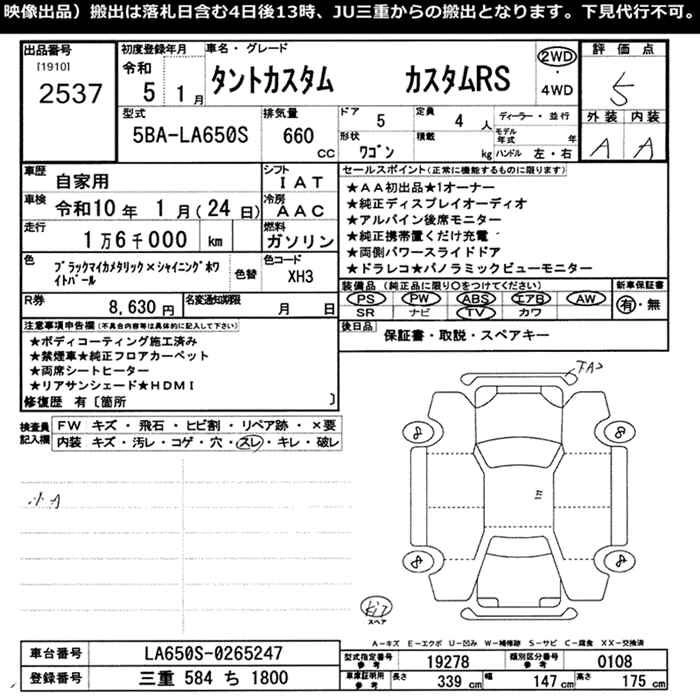 映像出品）搬出は落札日含む4日後13時、JU三重からの搬出となります。下見代行不可。
出品番号
[1910]
2537
初度登録年月
令和
5 1 月
車名・グレード
タントカスタム カスタムRS
2WD
・
4WD
評価点
5
外装 内装
A A
型式
5BA-LA650S
排気量
660
CC
ドア
5
定員
4 人
ディーラー・並行
形状
ワゴン
積載
kg
モデル年式 年
ハンドル 左・右
車歴
自家用
シフト
IAT
車検
令和10年 1月(24日)
冷房
AAC
走行
1万6千000 km
燃料
ガソリン
色
ブラックマイカメタリック×シャイニングホワイトパール
色替
色コード
XH3
R券
8,630 円
名変通知期限
月 日
セールスポイント(正常に機能するものに限ります)
★AA初出品★1オーナー
★純正ディスプレイオーディオ
★アルパイン後席モニター
★純正携帯置くだけ充電
★両側パワースライドドア
★ドラレコ★パノラミックビューモニター
装備品（純正品に限り○をつけてください）
PS PW ABS エアB AW
SR ナビ TV カワ
新車保証書
有・無
後日品
保証書・取説・スペアキー
注意事項申告欄(不具合内容等は具体的に記入して下さい)
★ボディコーティング施工済み
★禁煙車★純正フロアカーペット
★両席シートヒーター
★リアサンシェード★HDMI
修復歴 有〔箇所 〕
検査員記入欄
FW キズ・飛石・ヒビ割・リペア跡・×要
内装 キズ・汚レ・コゲ・穴・スレ・キレ・破レ
小A
下A2
8
8
8
8
E
スペア
A-キズ E-エクボ U-凹み W-補修跡 S-サビ C-腐食 XX-交換済
車台番号
LA650S-0265247
登録番号
三重 584 ち 1800
型式指定番号
参考
19278
類別区分番号
参考
0108
車庫証明用
参考
長さ 339 cm
幅 147 cm
高さ 175 cm